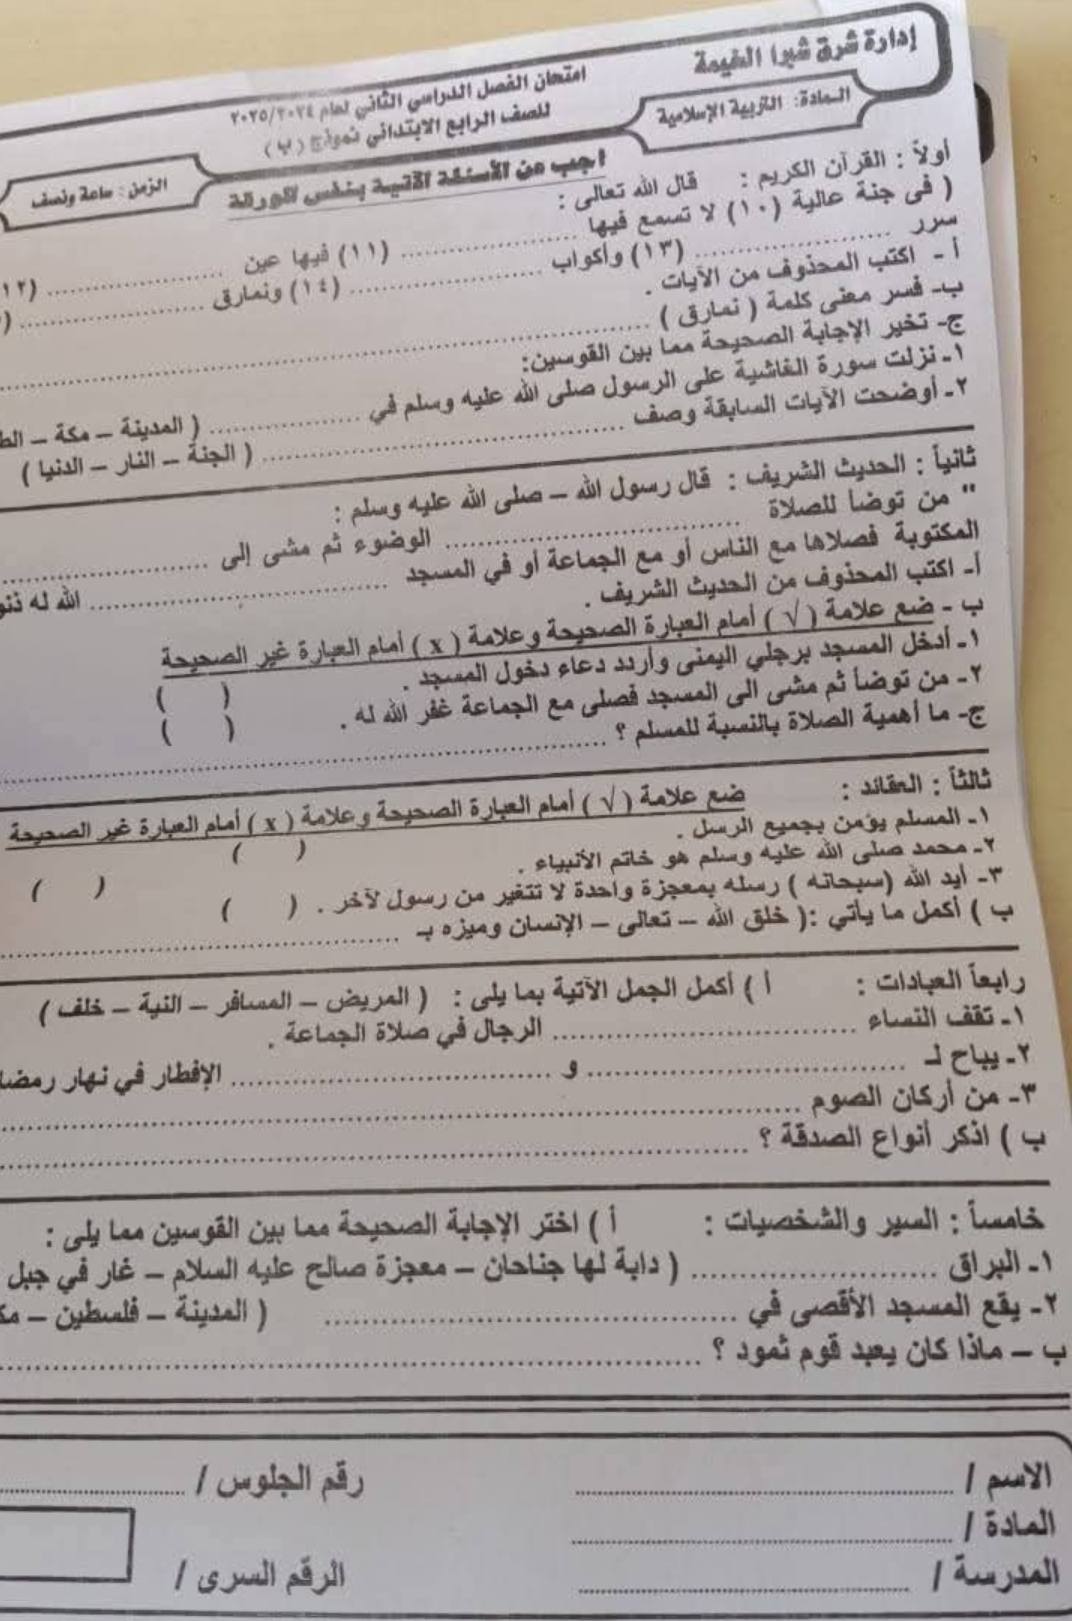 إدارة شرق شبرا الخيمة
امتحان الفصل الدراسي الثاني لعام ٢٠٢٥/٢٠٢٤
المادة: التربية الإسلامية
للصف الرابع الابتدائي نموذج ( ب )
الزمن : ساعة ونصف
اجب عن الأسئلة الآتية بنفس الورقة
أولاً : القرآن الكريم : قال الله تعالى :
( فى جنة عالية (١٠) لا تسمع فيها .................... (١١) فيها عين .................... (١٢)
سرر .................... (١٣) وأكواب .................... (١٤) ونمارق ....................
أ - اكتب المحذوف من الآيات .
ب- فسر معنى كلمة ( نمارق ) ....................
ج- تخير الإجابة الصحيحة مما بين القوسين:
١- نزلت سورة الغاشية على الرسول صلى الله عليه وسلم في .................... ( المدينة – مكة –
٢- أوضحت الآيات السابقة وصف .................... ( الجنة – النار – الدنيا )
ثانياً : الحديث الشريف : قال رسول الله – صلى الله عليه وسلم :
" من توضأ للصلاة .................... الوضوء ثم مشى إلى ....................
المكتوبة فصلاها مع الناس أو مع الجماعة أو في المسجد .................... الله له
أ- اكتب المحذوف من الحديث الشريف .
ب - ضع علامة ( √ ) أمام العبارة الصحيحة وعلامة ( x ) أمام العبارة غير الصحيحة
١- أدخل المسجد برجلي اليمنى وأردد دعاء دخول المسجد . ( )
٢- من توضأ ثم مشى الى المسجد فصلى مع الجماعة غفر الله له . ( )
ج- ما أهمية الصلاة بالنسبة للمسلم ؟ ....................
ثالثاً : العقائد : ضع علامة ( √ ) أمام العبارة الصحيحة وعلامة ( x ) أمام العبارة غير الصحيحة
١- المسلم يؤمن بجميع الرسل . ( )
٢- محمد صلى الله عليه وسلم هو خاتم الأنبياء . ( )
٣- أيد الله (سبحانه ) رسله بمعجزة واحدة لا تتغير من رسول لآخر . ( )
ب ) أكمل ما يأتي :( خلق الله – تعالى – الإنسان وميزه بـ ....................
رابعاً العبادات : أ ) أكمل الجمل الآتية بما يلى : ( المريض – المسافر – النية – خلف )
١- تقف النساء .................... الرجال في صلاة الجماعة .
٢- يباح لـ .................... و .................... الإفطار في نهار
٣- من أركان الصوم ....................
ب ) اذكر أنواع الصدقة ؟ ....................
خامساً : السير والشخصيات : أ ) اختر الإجابة الصحيحة مما بين القوسين مما يلى :
١- البراق .................... ( دابة لها جناحان – معجزة صالح عليه السلام – غار في جبل
٢- يقع المسجد الأقصى في .................... ( المدينة – فلسطين –
ب – ماذا كان يعبد قوم ثمود ؟ ....................
الاسم / .................... رقم الجلوس / ....................
المادة / ....................
المدرسة / .................... الرقم السرى /